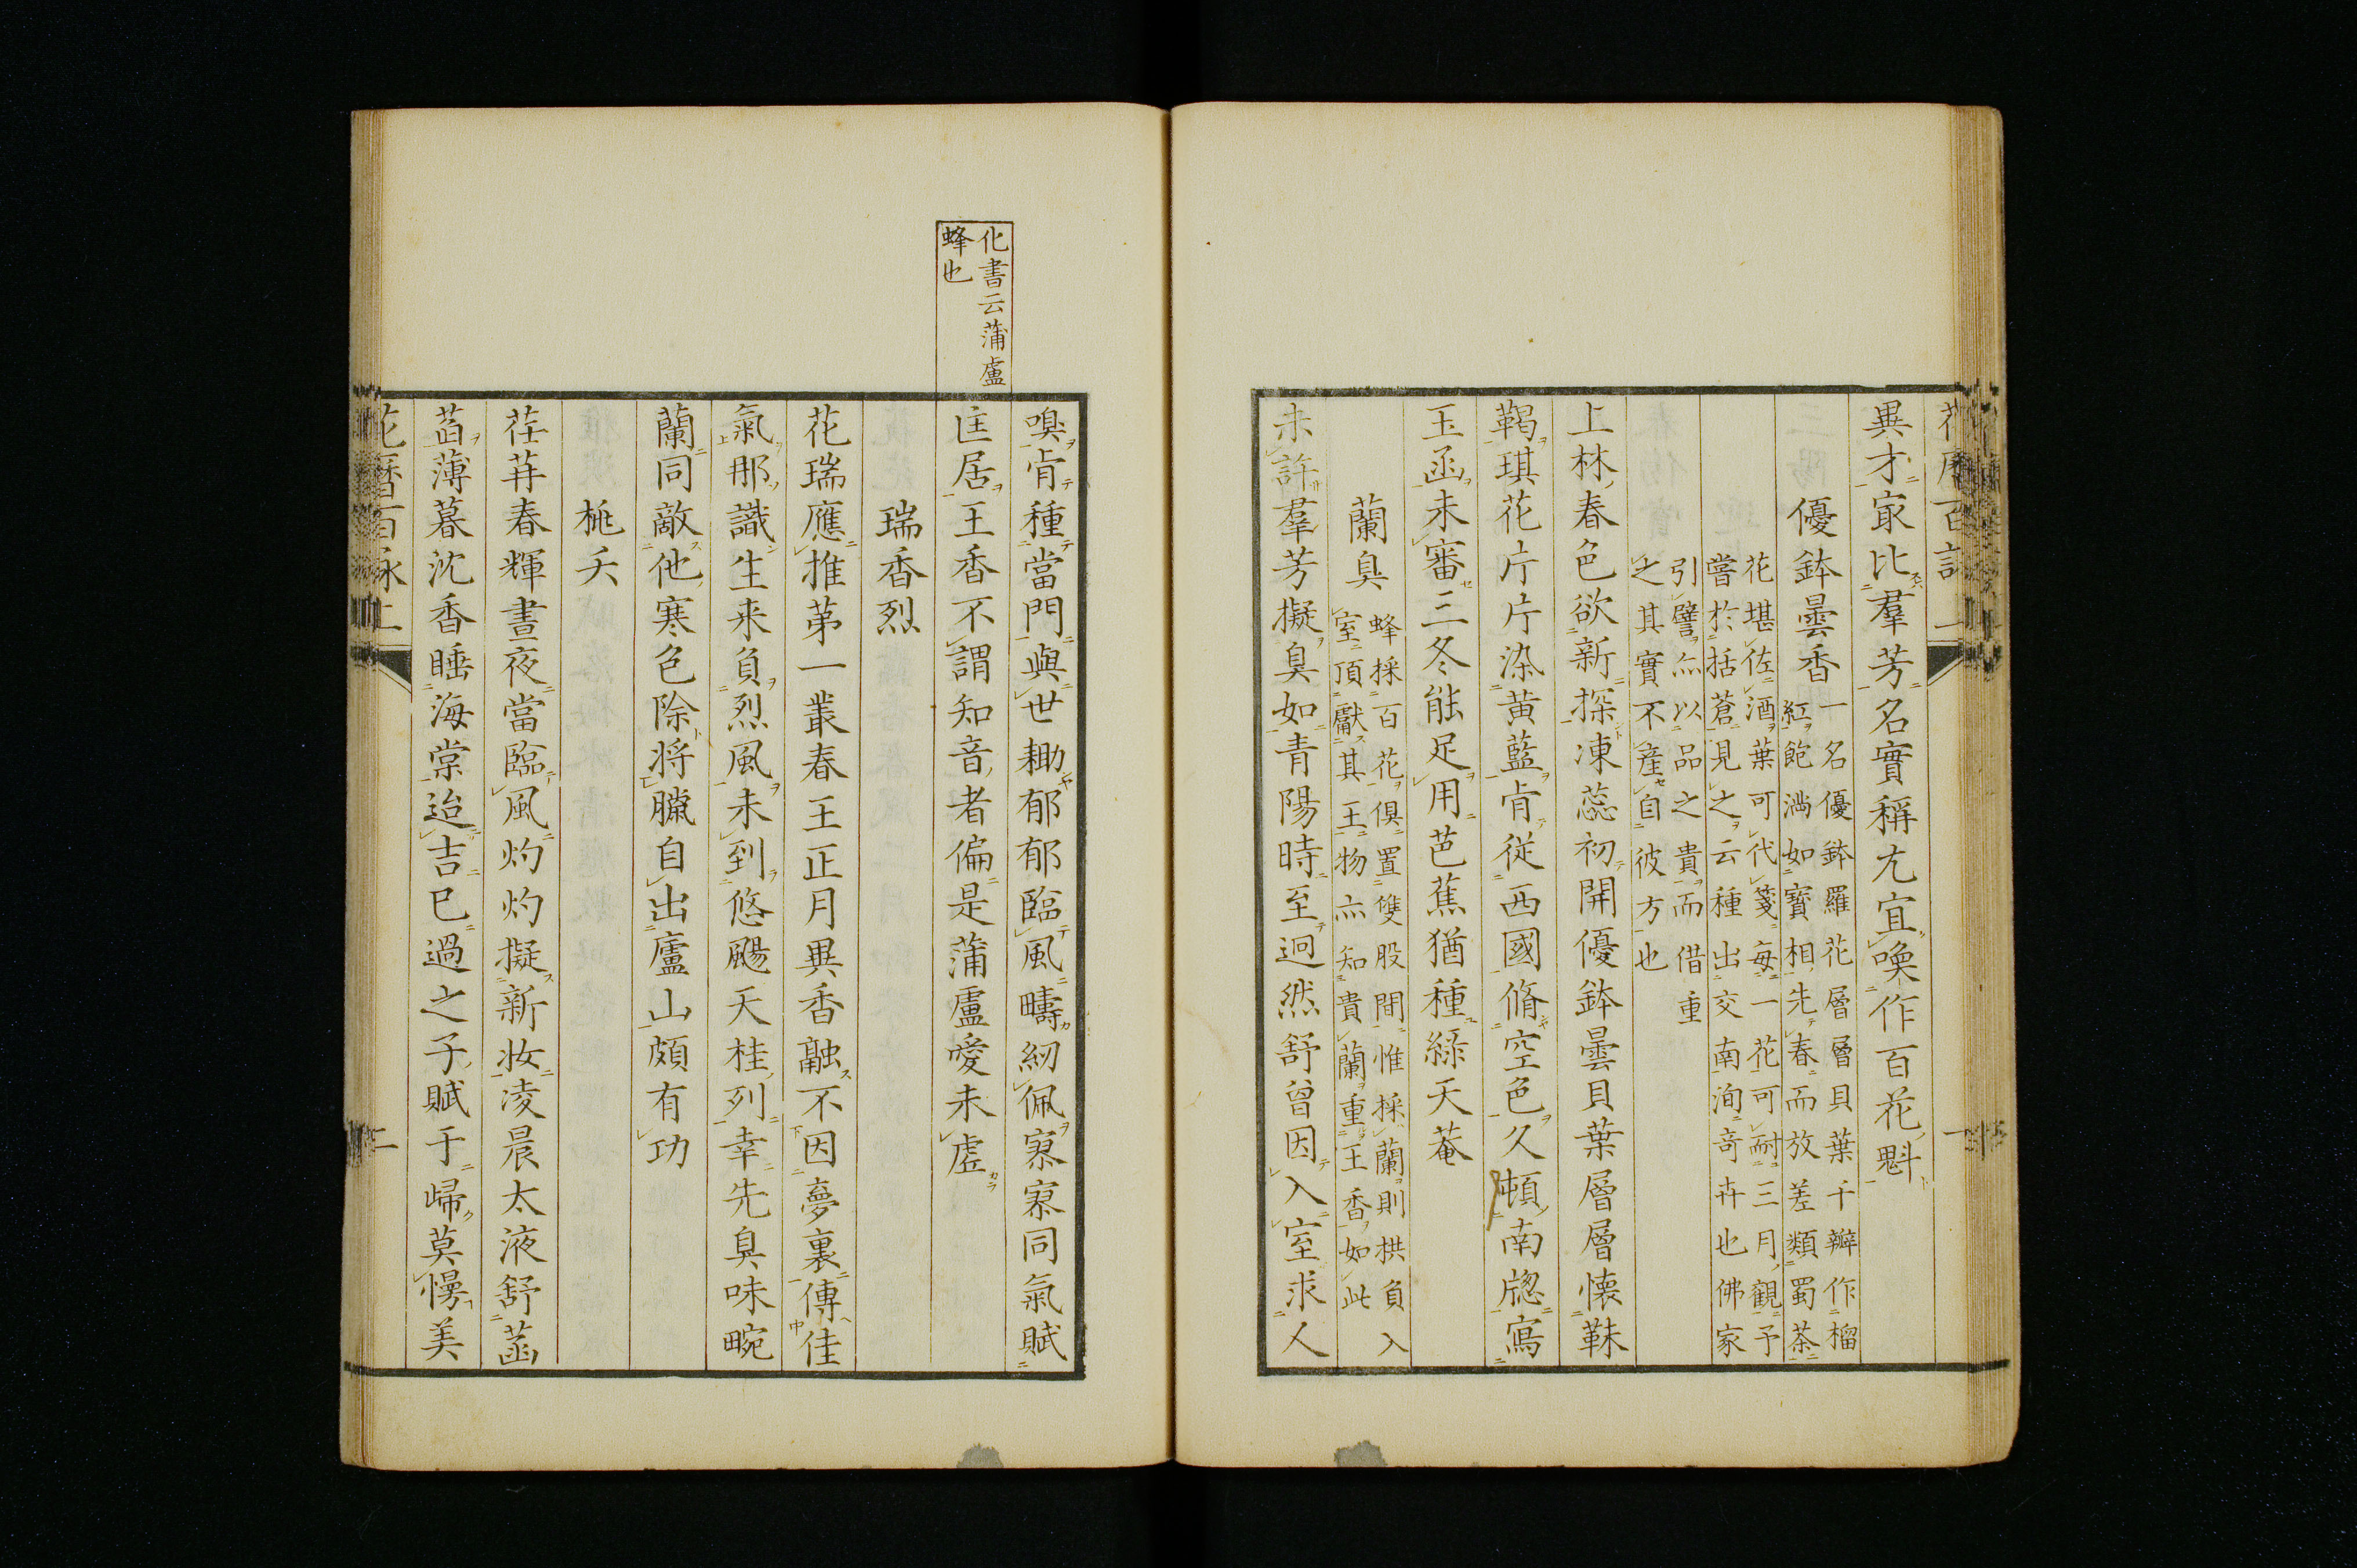 異才㝡比羣芳名實稱尤宜喚作百花魁
優鉢曇香
一名優鉢羅花層層貝葉千瓣作榴
紅飽滿如寳相先春而放差類蜀茶
花堪佐酒葉可代箋每一花可耐三月觀予
嘗於括蒼見之云種出交南洵奇卉也佛家
引譬亦以品之貴而借重
之其實不產自彼方也
上林春色欲新探凍蕊初開優鉢曇貝葉層層懷靺
鞨琪花片片染黃藍肯從西國脩空色久頓南牕寫
玉函未審三冬能足用芭蕉猶種綠天菴
蘭臭
蜂採百花俱置雙股間惟採蘭則拱負入
室頂獻其王物亦知貴蘭重王香如此
未許羣芳擬臭如青陽時至迥然舒曾因入室求人
嗅肯種當門與世耡郁郁臨風疇紉佩寡寡同氣賦
化書云蒲盧
蜂也
匡居王香不謂知音者偏是蒲盧愛未虛
瑞香烈
花瑞應推第一叢春王正月異香融不因夢裏傳佳
氣那識生来負烈風未到悠颺天桂列幸先臭味畹
蘭同敵他寒色除將臘自出廬山頗有功
桃夭
荏苒春輝晝夜當臨風灼灼擬新妝淩晨太液舒菡
萏薄暮沈香睡海棠迨吉巳過之子賦于歸莫慢美
花曆百詠上
二